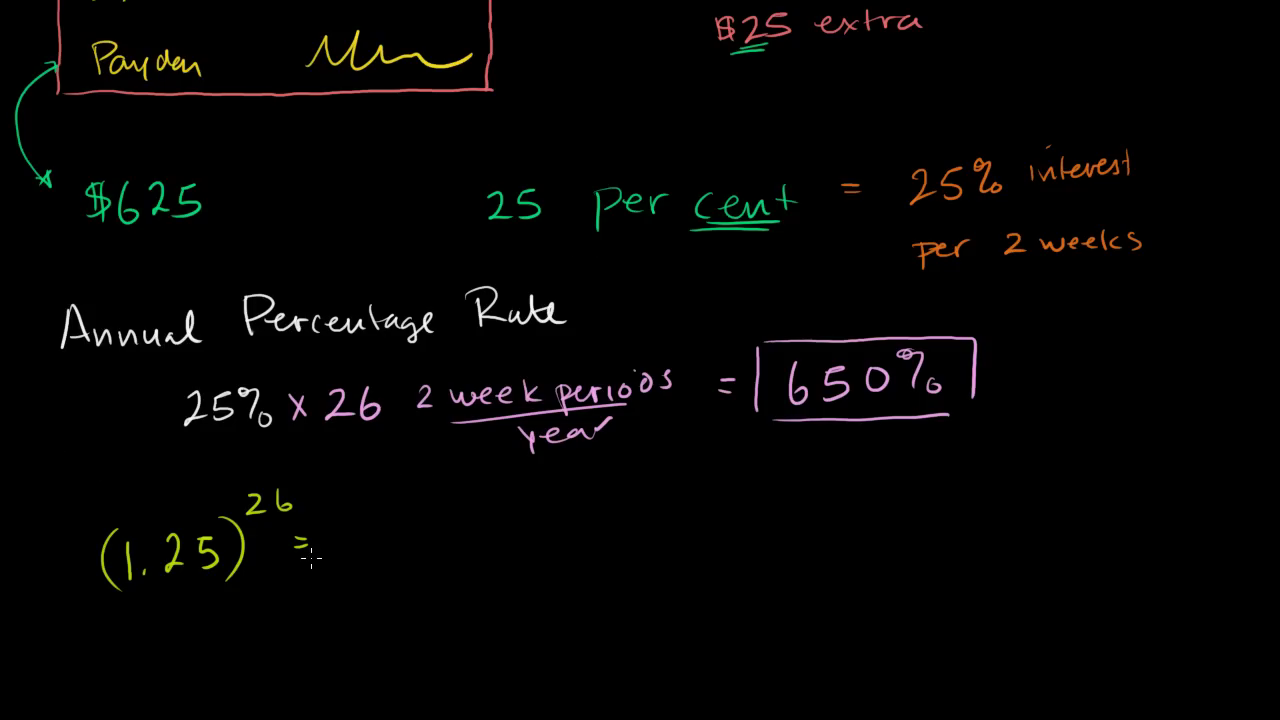 $25 extra
Payday
$625
25 per cent = 25% interest
per 2 weeks
Annual Percentage Rate
25% × 26 2 week periods / year = 650%
(1.25)^26 =